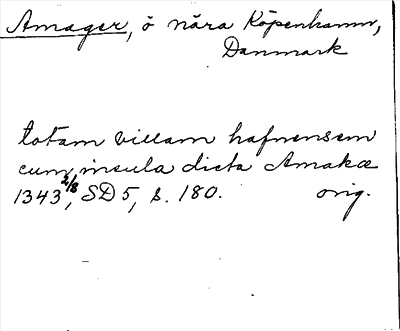 Amager, ö nära Köpenhamn,
Danmark
totam villam hafnensem
cum insula dicta Amakæ
1343 2/8, SD 5, s. 180. orig.